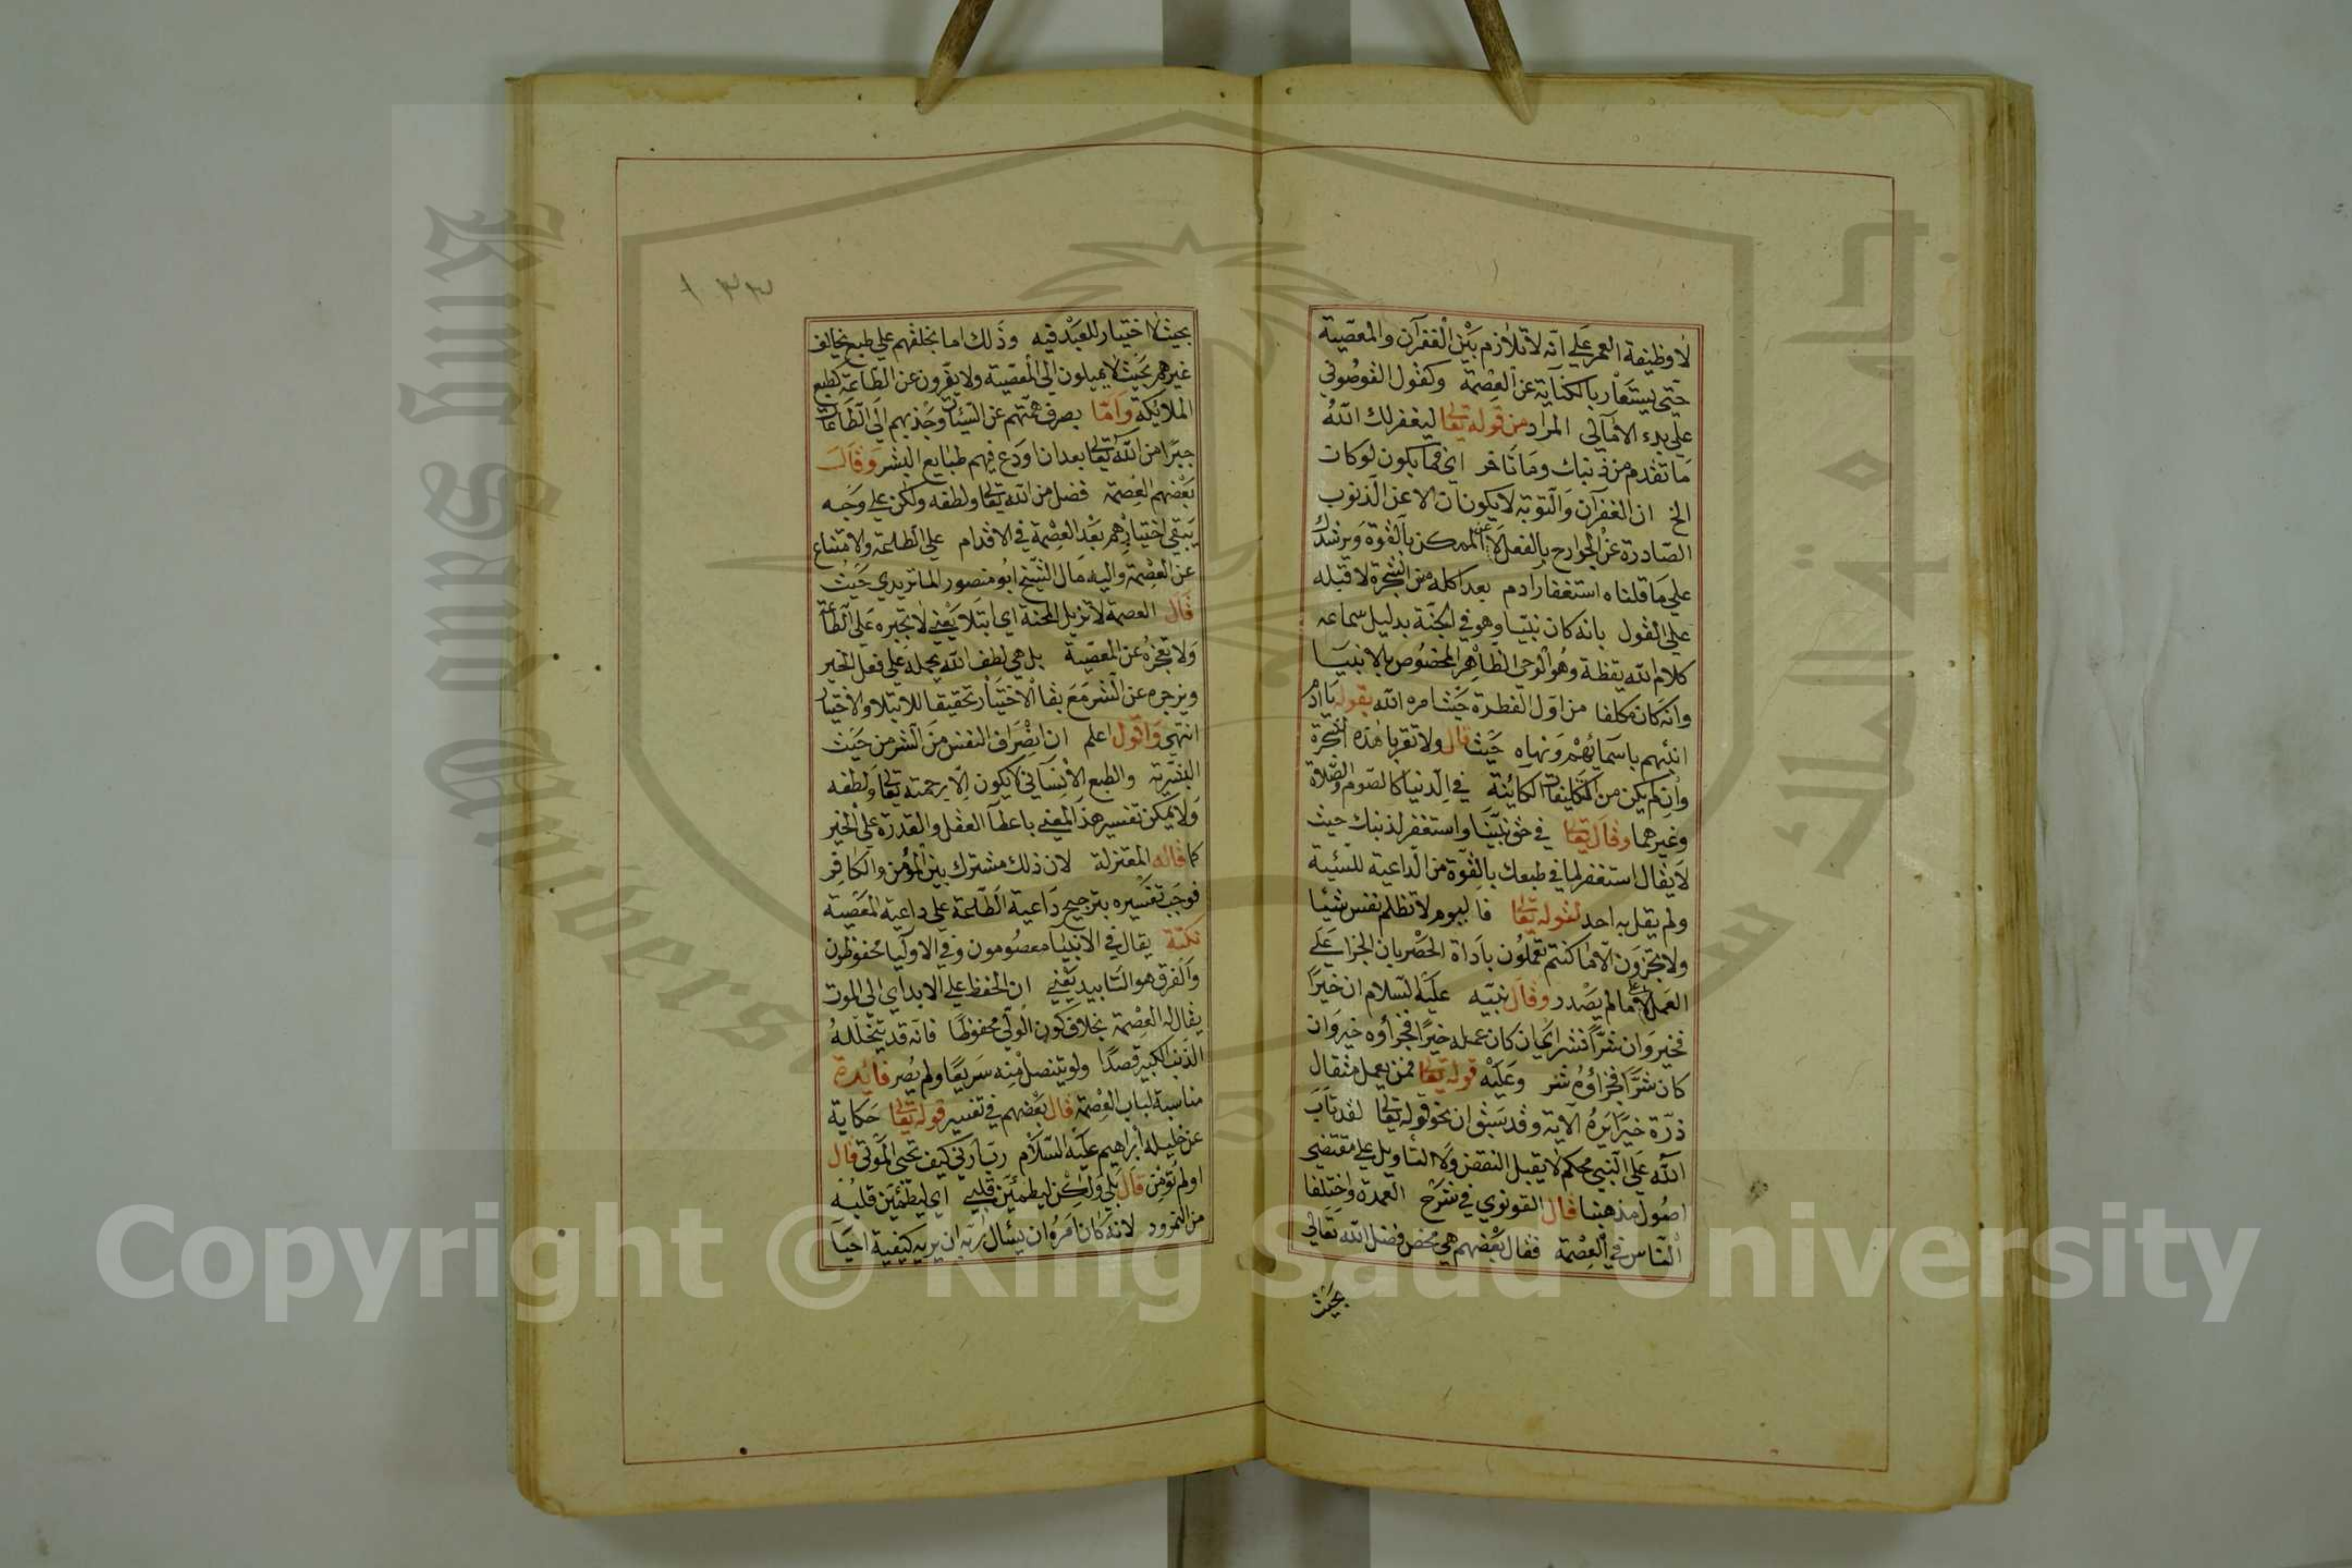 لا وظيفة العمر علي انّه لا تلازم بين الغفران والمعصية
حتي يستعار بالكناية عن العصمة وكقول القوصوني
علي بدء الأمالي المراد من قوله تعالى ليغفر لك الله
ما تقدم من ذنبك وما تأخر اي فيما يكون لو كان
الخ ان الغفران والتوبة لا يكونان الا عن الذنوب
الصادرة عن الجوارح بالفعل لا عن الممكن بالقوة ويرشدك
علي ما قلناه استغفار آدم بعد اكله من الشجرة لا قبله
علي القول بانه كان نبيّا وهو في الجنّة بدليل سماعه
كلام الله يقظة وهو الوحي الظاهر المخصوص بالانبيا
وانه كان مكلفا من اوّل الفطرة حيث امره الله بقوله يا آدم
انبئهم باسمائهم ونهاه حيث قال ولا تقربا هذه الشجرة
وان لم يكن من التكليفات الكائنة في الدنيا كالصوم والصلاة
وغيرهما وقال تعالى في حق نبيّنا واستغفر لذنبك حيث
لا يقال استغفر لما في طبعك بالقوّة من الداعية للسئية
ولم يقل به احد لقوله تعالى فاليوم لا تظلم نفس شئيا
ولا تجزون الّا ما كنتم تعملون باداة الحصر بان الجزا علي
العمل لا علي ما لم يصدر وقال نبيّه عليه السلام ان خيرًا
فخير وان شرًّا فشر اي ان كان عمله خيرًا فجزاؤه خير وان
كان شرًّا فجزاؤه شر وعليه قوله تعالى فمن يعمل مثقال
ذرّة خيرًا يره الآية وقد سبق ان نحو قوله تعالى لقد تاب
الله علي النبي محكم لا يقبل النقض ولا التأويل علي مقتضي
اصول مذهبنا قال القونوي في شرح العمدة واختلفا
الناس في العصمة فقال بعضهم هي محض فضل الله تعالي
بحيث
١٣٢
بحيث لا اختيار للعبد فيه وذلك اما بخلقهم علي طبع يخالف
غيرهم بحيث لا يميلون الي المعصية ولا ينفرون عن الطاعة كطبع
الملائكة وامّا بصرف همّتهم عن السيئات وجذبهم الي الطاعات
جبرًا من الله تعالى بعد ان اودع فيهم طبايع البشر وقال
بعضهم العصمة فضل من الله تعالى ولطفه ولكن علي وجه
يبقي اختيارهم بعد العصمة في الاقدام علي الطاعة والامتناع
عن العصمة واليه مال الشيخ ابو منصور الماتريدي حيث
قال العصمة لا تزيل المحنة اي ابتلا يعني لا تجبره علي الطاعة
ولا تعجزه عن المعصية بل هي لطف الله يحمله علي فعل الخير
ويزجره عن الشر مع بقا الاختيار تحقيقا للابتلا والاختيار
انتهي واقول اعلم ان انصراف النفس من الشر من حيث
البشرية والطبع الانساني لا يكون الا برحمته تعالى ولطفه
ولا يمكن تفسير هذا المعني باعطآ العقل والقدرة علي الخير
كما قاله المعتزلة لان ذلك مشترك بين المؤمن والكافر
فوجب تفسيره بترجيح داعية الطاعة علي داعية المعصية
نكتة يقال في الانبيآ معصومون وفي الاوليا محفوظون
والفرق هو التابيد يعني ان الحفظ علي الابد اي الي الموت
يقال له العصمة بخلاف كون الولي محفوظًا فانه قد يتخلّله
الذنب الكبير قصدًا ولو يتنصل منه سريعًا ولم يصر فائدة
مناسبة لباب العصمة قال بعضهم في تفسير قوله تعالى حكاية
عن خليله ابراهيم عليه السلام ربّ ارني كيف تحي الموتي قال
اولم تؤمن قال بلي ولكن ليطمئن قلبي اي ليطمئن قلبه
من النمرود لانه كان امره ان يسئال ربّه ان يريه كيفية احيآ
Copyright © King Saud University
King Saud University